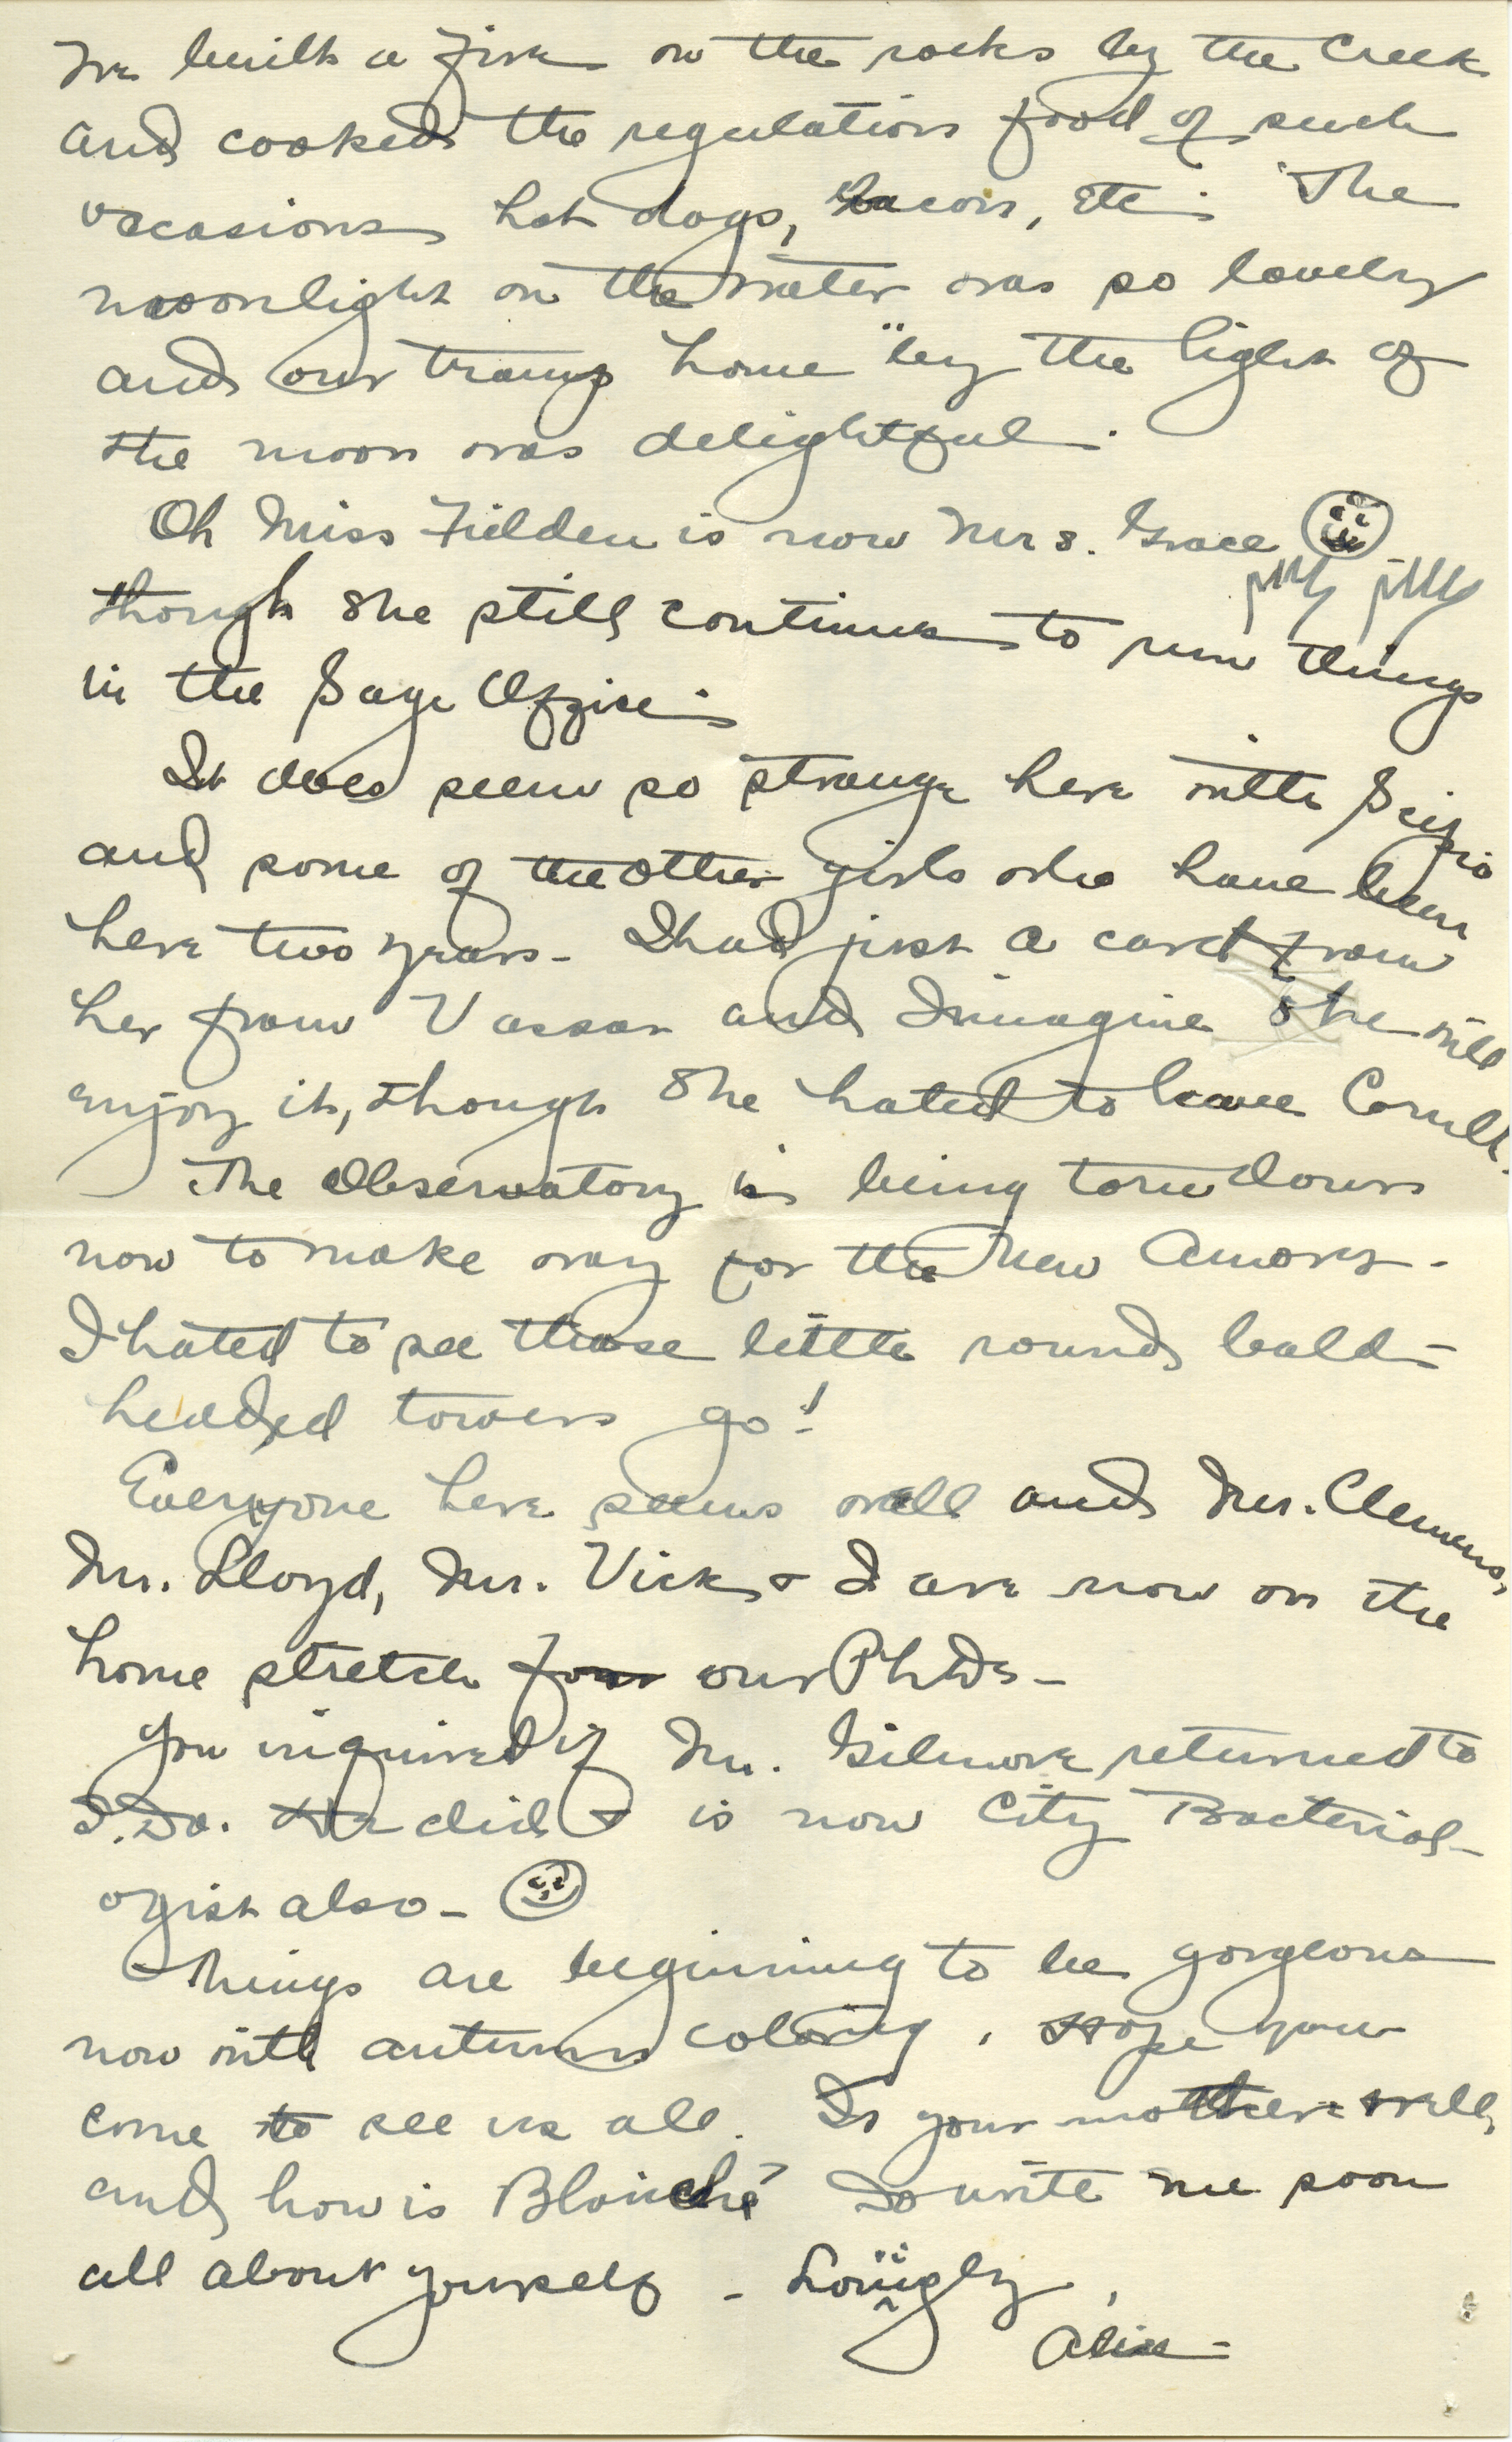 We built a fire on the rocks by the Creek
and cooked the regulation food of such
occasions hot dogs, bacon, etc. The
moonlight on the water was so lovely
and our tramp home "by the light of
the moon was delightful.
Oh Miss Fielden is now Mrs. Grace
though she still continues to run things
in the Sage Office.
It does seem so strange here with Scipio
and some of the other girls who have been
here two years - I had just a card from
her from Vassar and I imagine she will
enjoy it, though she hated to leave Cornell.
The Observatory is being torn down
now to make way for the New Amory.
I hated to see those little round bald-
headed towers go!
Everyone here seems well and Mr. Clemens,
Mr. Lloyd, Mr. Vick & I are now on the
home stretch for our PhDs -
You inquired if Mr. Gilmore returned to
S. Da. He did & is now City Bacteriol-
ogist also -
Things are beginning to be gorgeous
now with autumn coloring. Hope you
come to see us all. Is your mother well,
and how is Blanche? Do write me soon
all about yourself - Lovingly,
Alice -